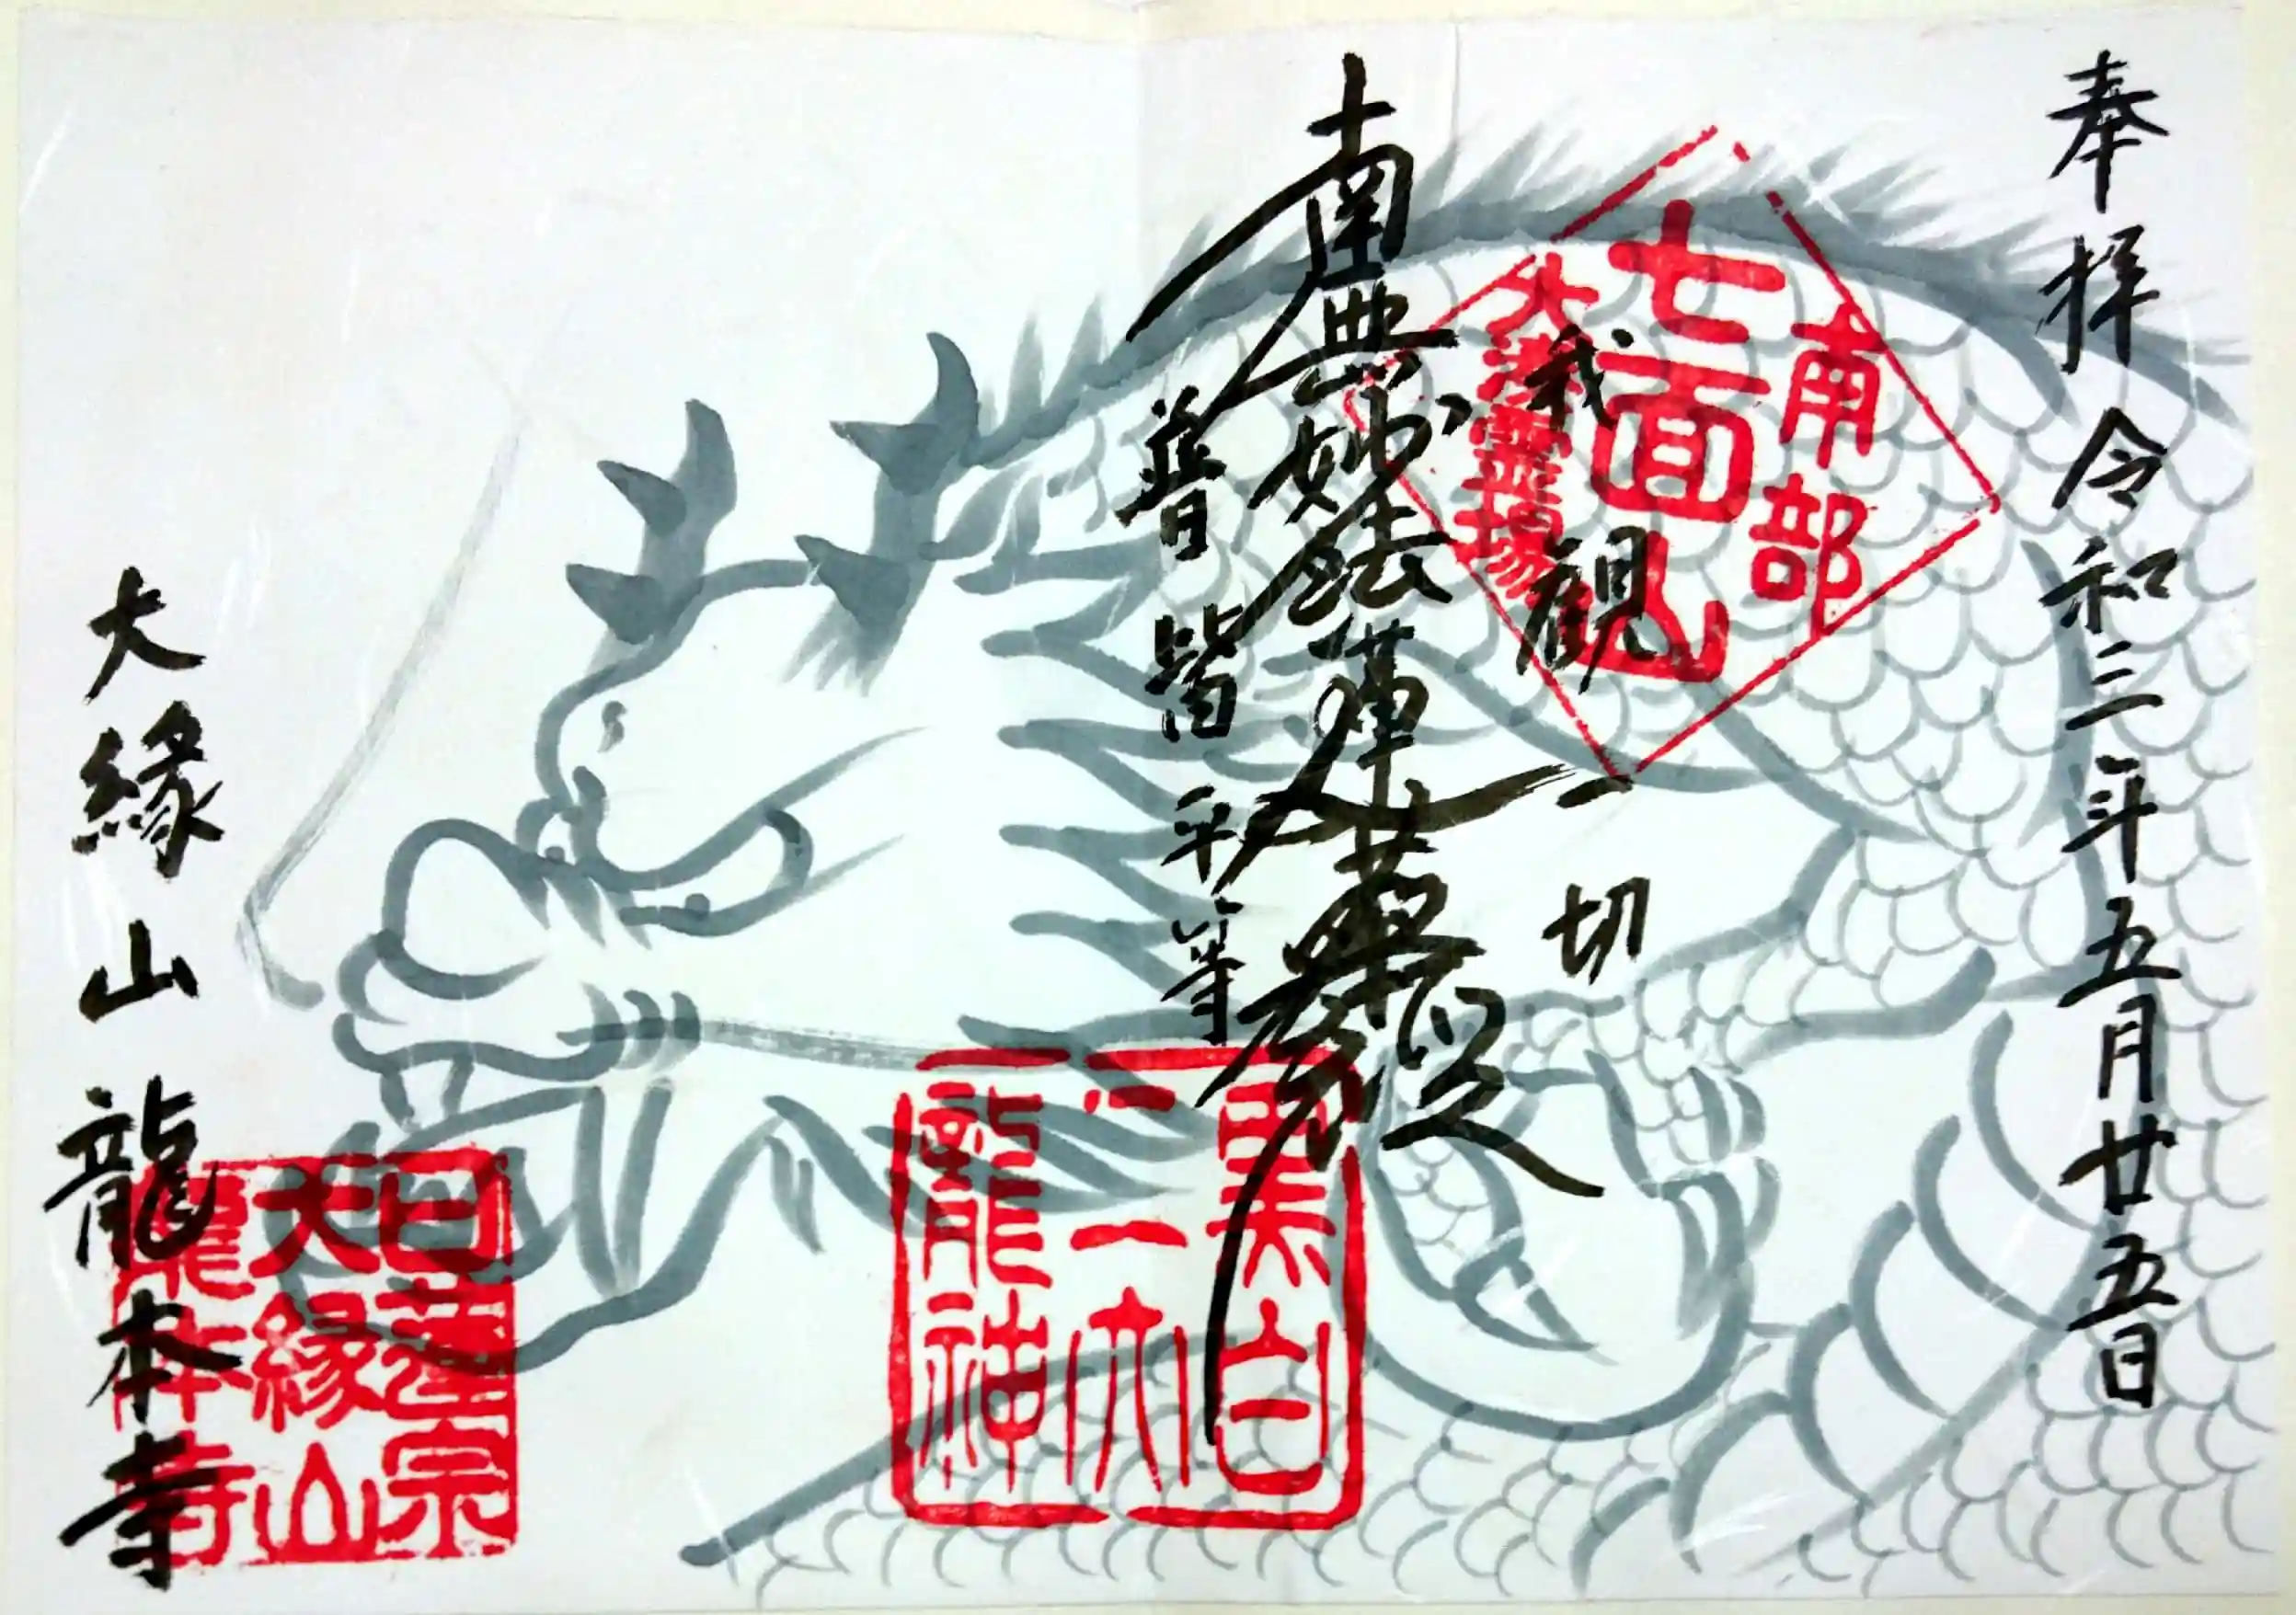 奉拝 令和三年五月廿五日
南部
七面山
大漢霊場
我観一切
南無妙法蓮華経
普皆平等
黒白
二大
龍神
大縁山 龍本寺
日蓮宗
大縁山
龍本寺